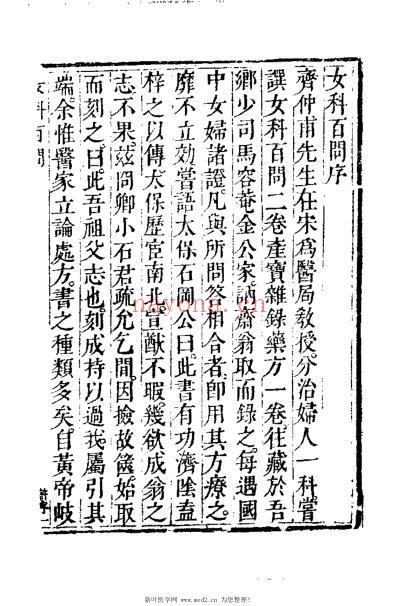 女科百問序
齊仲甫先生在宋爲醫局教授分治婦人一科嘗
譔女科百問二卷產寶雜錄藥方一卷徃藏於吾
鄉少司馬容菴金公家訥齋翁取而錄之每遇國
中女婦諸證凡與所問答相合者卽用其方療之
靡不立効嘗語太保石岡公曰此書有功濟陰盍
梓之以傳太保歷宦南北宣猷不暇幾欲成翁之
志不果茲冏卿小石君疏允乞閒因撿故篋始取
而刻之曰此吾祖父志也刻成持以過我屬引其
端余惟醫家立論處方書之種類多矣自黃帝岐
女科百問
nayona.cn
新叶医学网 www.med2.cn 为您整理!